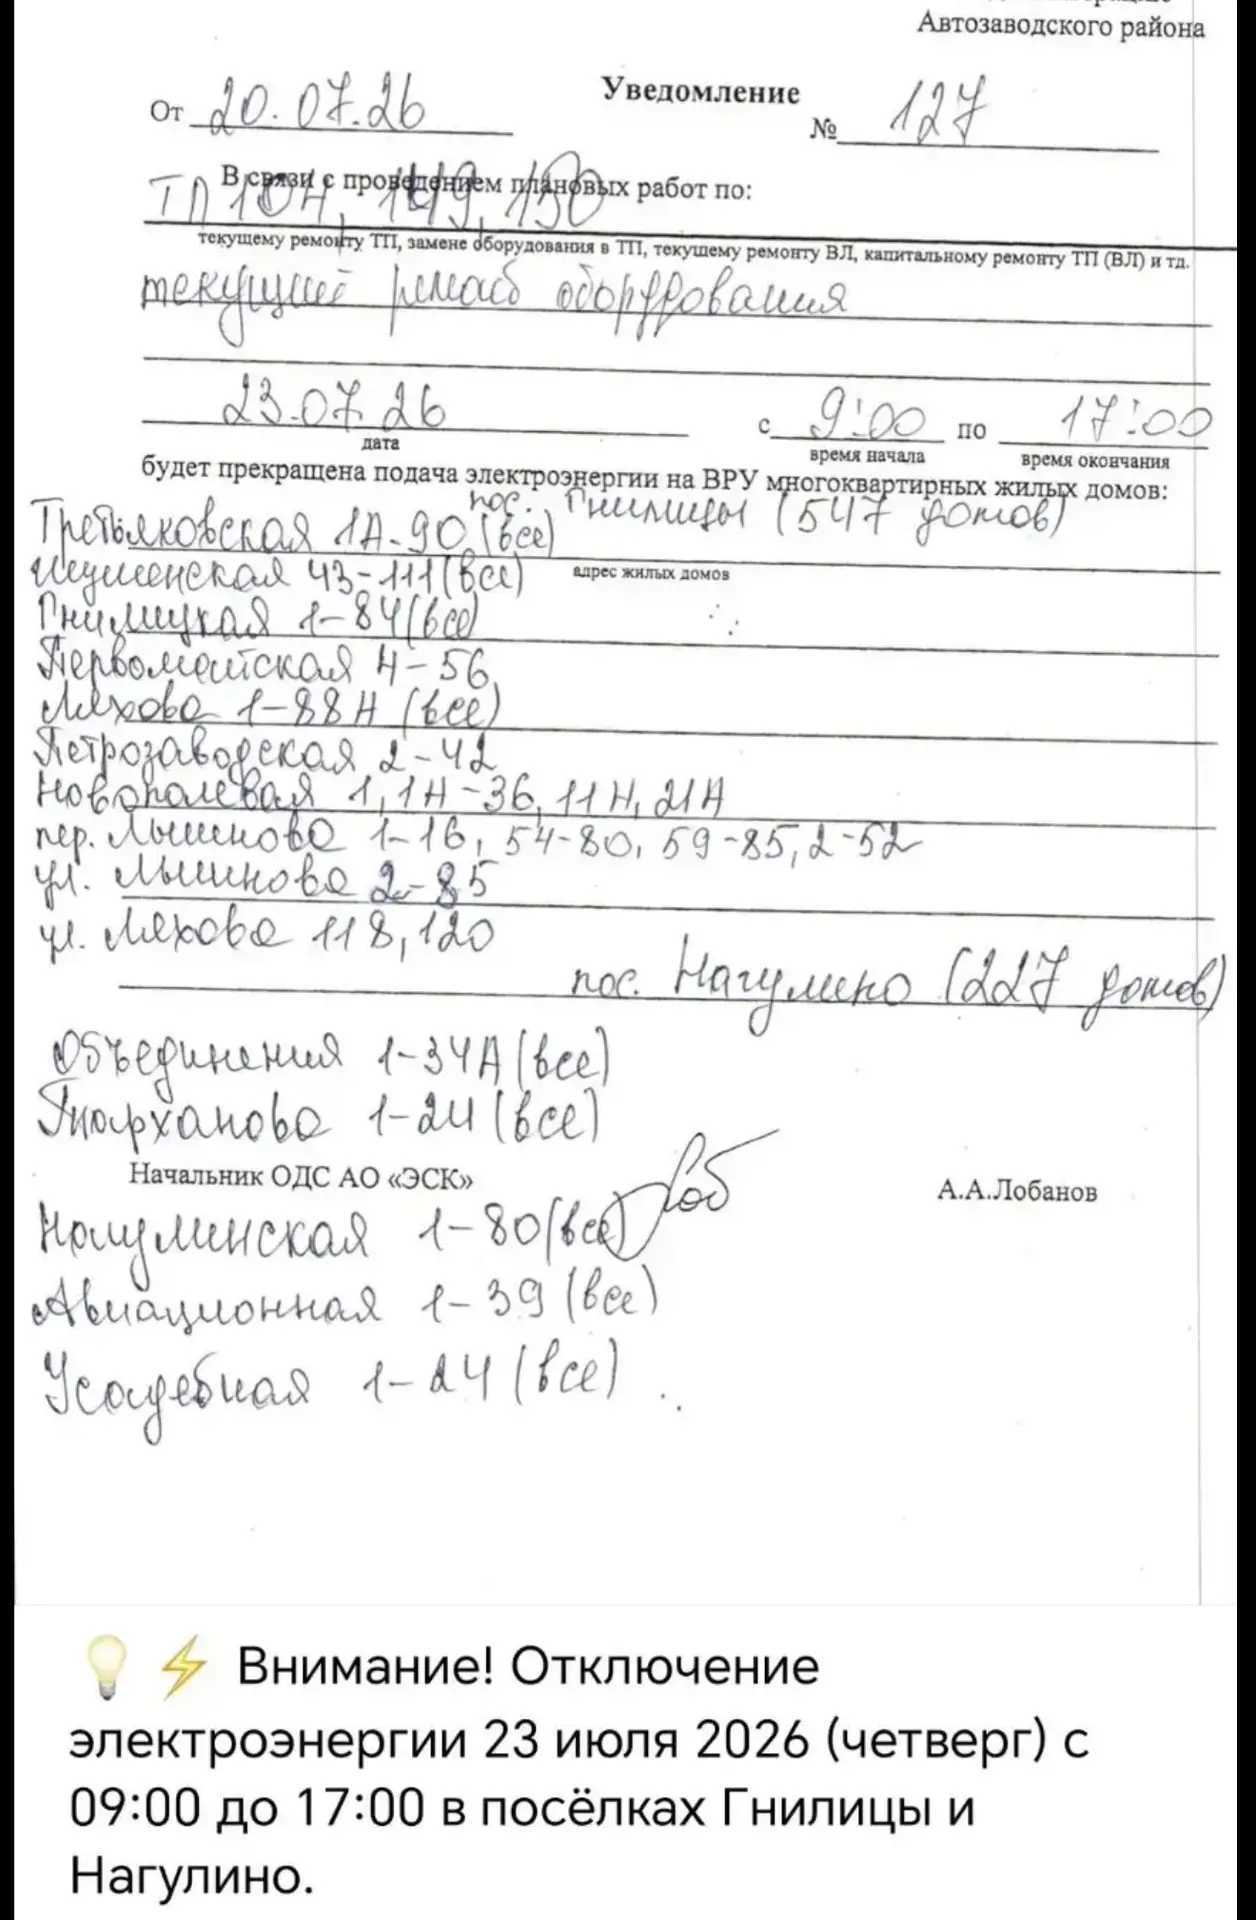 Автозаводского района
Уведомление
От 20.07.26
№ 127
В связи с проведением плановых работ по:
ТП 149, 150
текущему ремонту ТП, замене оборудования в ТП, текущему ремонту ВЛ, капитальному ремонту ТП (ВЛ) и тд.
текущий ремонт оборудования
23.07.26 с 9:00 по 17:00
дата время начала время окончания
будет прекращена подача электроэнергии на ВРУ многоквартирных жилых домов:
пос. Гнилицы (547 домов)
Третьяковская 1А-90 (все)
43-111 (все) адрес жилых домов
Гнилицкая 1-84 (все)
Первомайская 4-56
Ляхова 1-88Н (все)
Петрозаводская 2-42
Новополевая 1, 1Н-36, 11Н, 21А
пер. Лышнова 1-16, 54-80, 59-85, 2-52
ул. Лышнова 2-85
ул. Ляхова 118, 120
пос. Нагулино (227 домов)
Объединения 1-34А (все)
Тарханова 1-24 (все)
Начальник ОДС АО «ЭСК» А.А.Лобанов
1-80 (все)
Авиационная 1-39 (все)
Усадебная 1-24 (все)
💡⚡ Внимание! Отключение
электроэнергии 23 июля 2026 (четверг) с
09:00 до 17:00 в посёлках Гнилицы и
Нагулино.